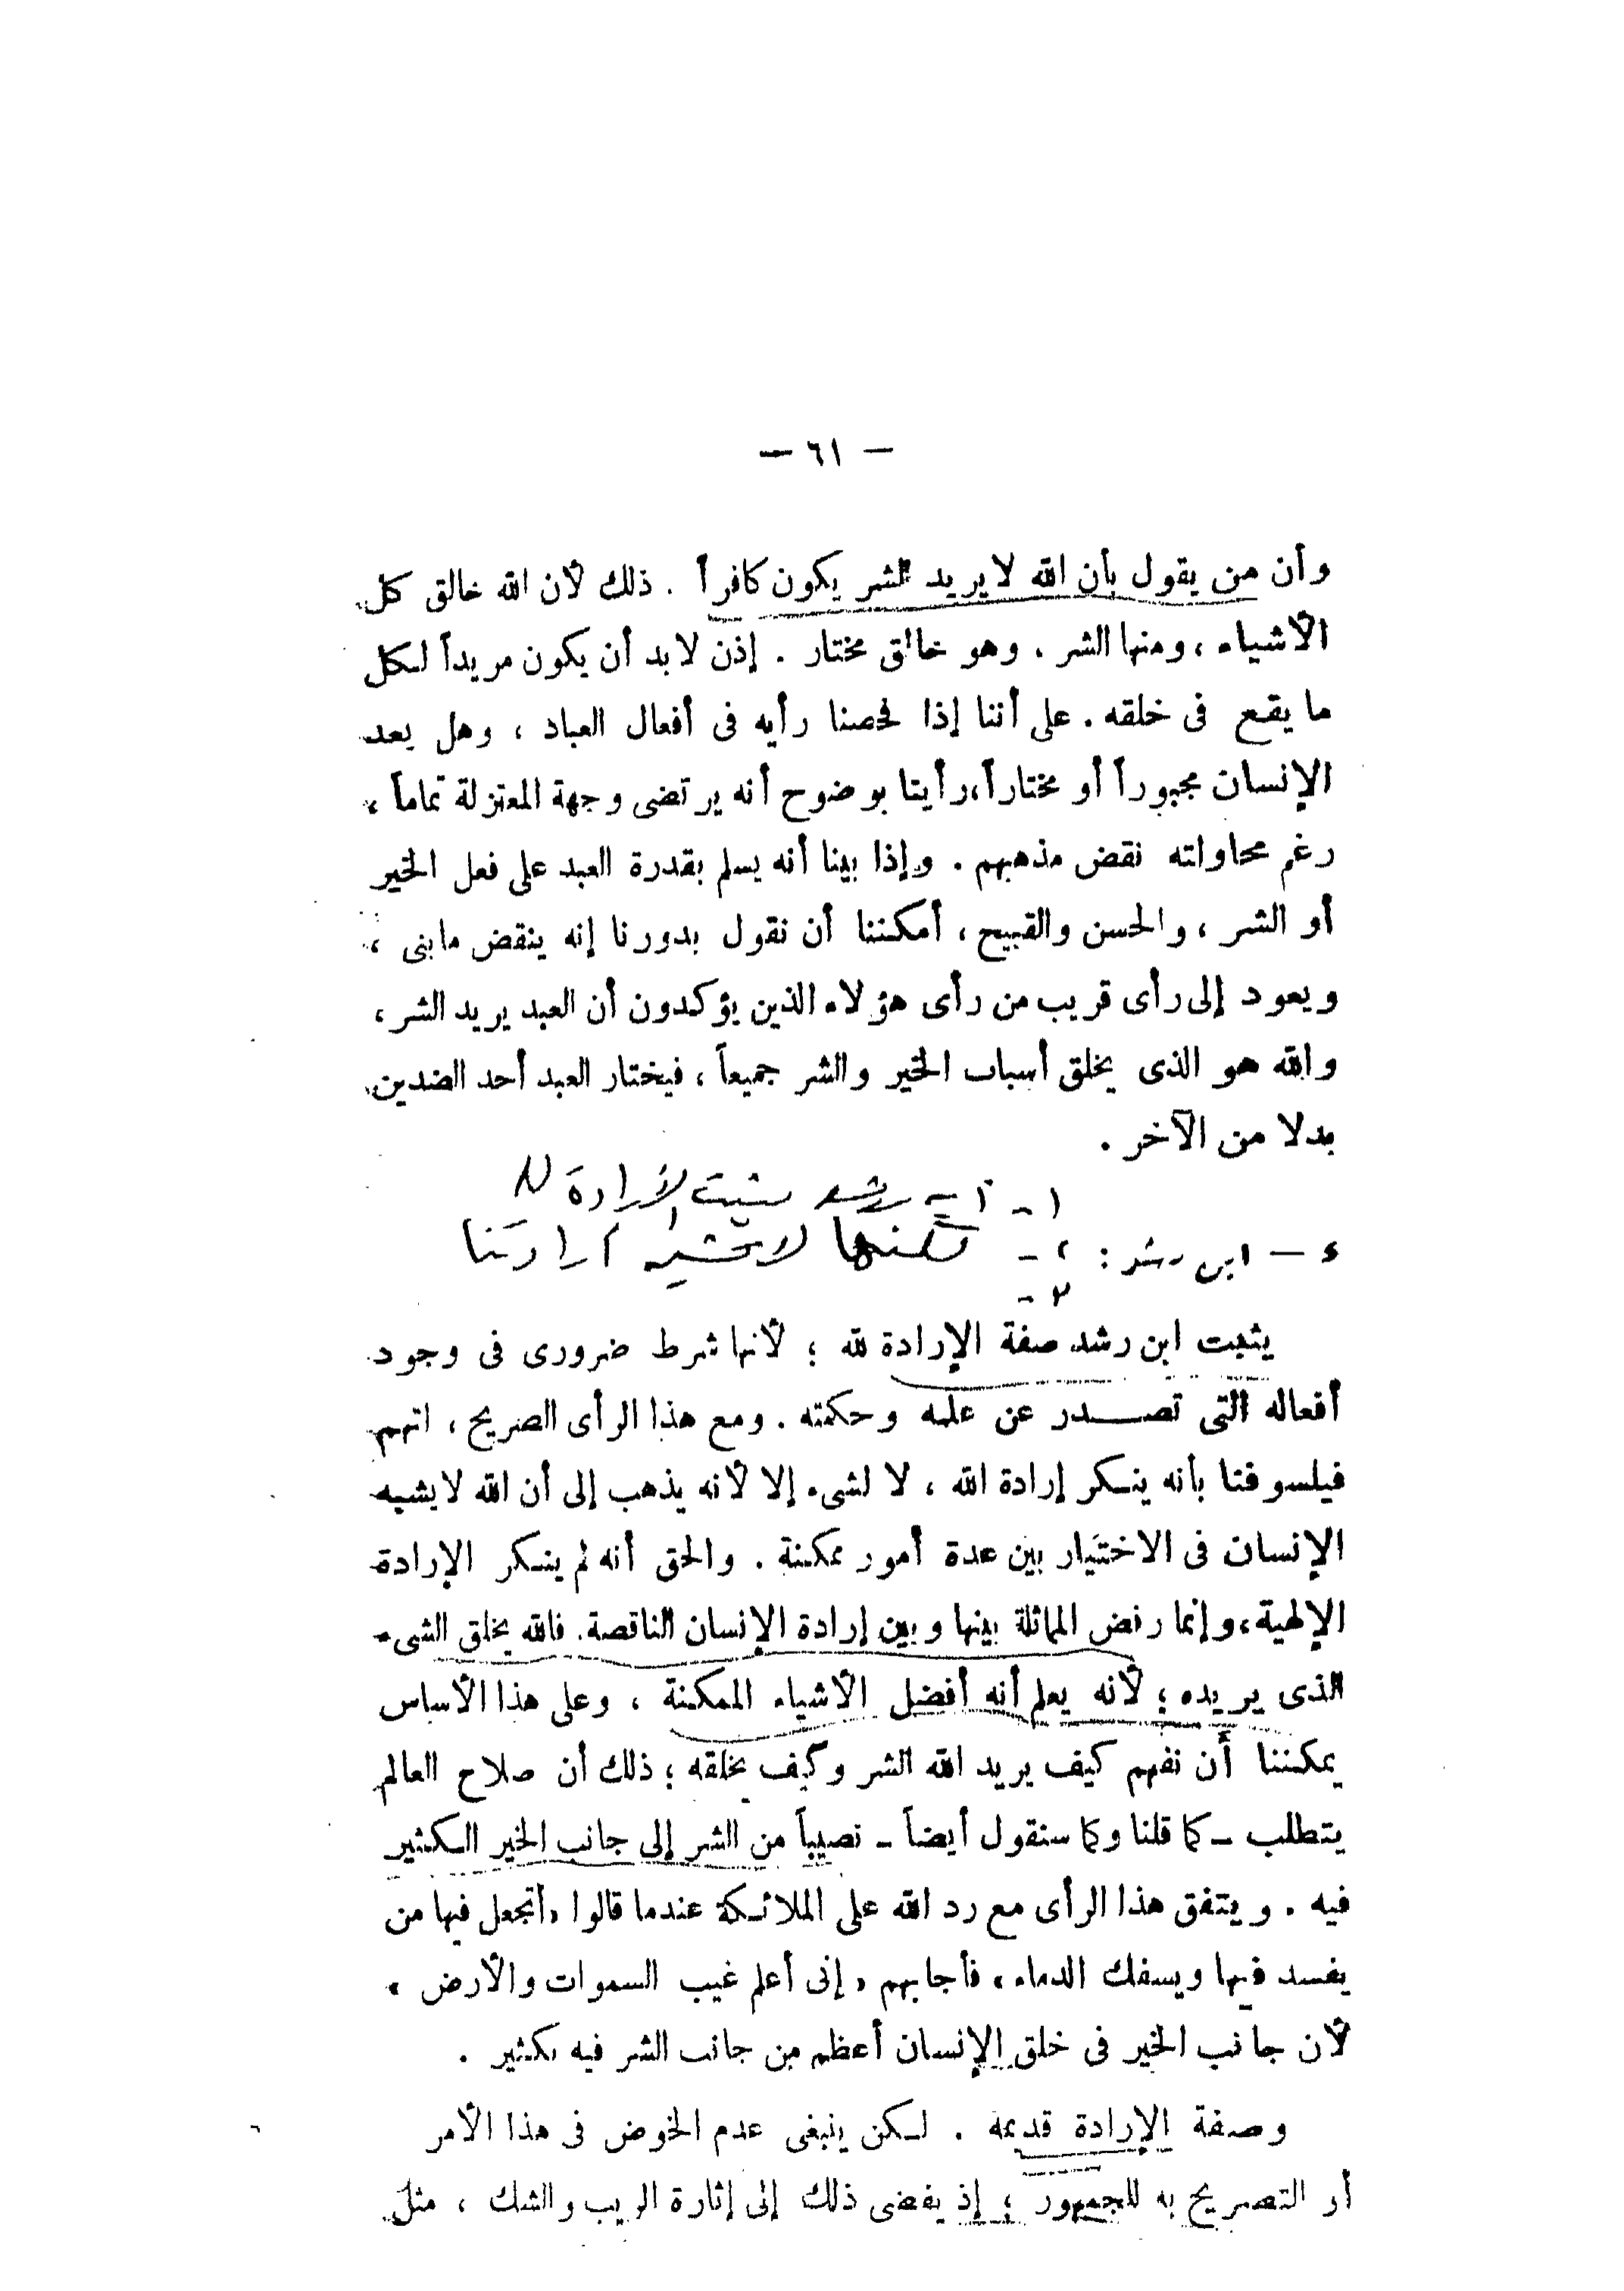 — ٦١ —
وأن من يقول بأن الله لا يريد الشر يكون كافراً . ذلك لأن الله خالق كل
الأشياء ، ومنها الشر . وهو خالق مختار . إذن لا بد أن يكون مريداً لكل
ما يقع فى خلقه . على أننا إذا فحصنا رأيه فى أفعال العباد ، وهل يعد
الإنسان مجبوراً أو مختاراً، رأينا بوضوح أنه يرتضى وجهة المعتزلة تماماً ،
رغم محاولته نقض مذهبهم . وإذا بينا أنه يسلم بقدرة العبد على فعل الخير
أو الشر ، والحسن والقبيح ، أمكننا أن نقول بدورنا إنه ينقض ما بنى ،
ويعود إلى رأى قريب من رأى هؤلاء الذين يؤكدون أن العبد يريد الشر ،
والله هو الذى يخلق أسباب الخير والشر جميعاً ، فيختار العبد أحد الضدين
بدلا من الآخر .
١ - رشد يثبت الإرادة لله
٤ — ابن رشد : ٢ - لكنها لا تشبه إرادتنا
٣ -
يثبت ابن رشد صفة الإرادة لله ؛ لأنها شرط ضرورى فى وجود
أفعاله التى تصدر عن علمه وحكمته . ومع هذا الرأى الصريح ، اتهم
فيلسوفنا بأنه ينكر إرادة الله ، لا لشىء إلا لأنه يذهب إلى أن الله لا يشبه
الإنسان فى الاختيار بين عدة أمور ممكنة . والحق أنه لم ينكر الإرادة
الإلهية، وإنما رفض المماثلة بينها وبين إرادة الإنسان الناقصة. فالله يخلق الشىء
الذى يريده ؛ لأنه يعلم أنه أفضل الأشياء الممكنة ، وعلى هذا الأساس
يمكننا أن نفهم كيف يريد الله الشر وكيف يخلقه ؛ ذلك أن صلاح العالم
يتطلب – كما قلنا وكما سنقول أيضاً – نصيباً من الشر إلى جانب الخير الكثير
فيه . ويتفق هذا الرأى مع رد الله على الملائكة عندما قالوا «أتجعل فيها من
يفسد فيها ويسفك الدماء» فأجابهم «إنى أعلم غيب السموات والأرض»
لأن جانب الخير فى خلق الإنسان أعظم من جانب الشر فيه بكثير .
وصفة الإرادة قديمة . لكن ينبغى عدم الخوض فى هذا الأمر
أو التصريح به للجمهور ؛ إذ يفضى ذلك إلى إثارة الريب والشك ، مثل